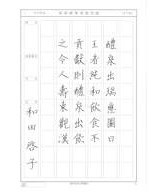 醴泉出瑞應圖曰
王者純和飲食不
貢獻則醴泉出飲
之令人壽東觀漢
和田啓子